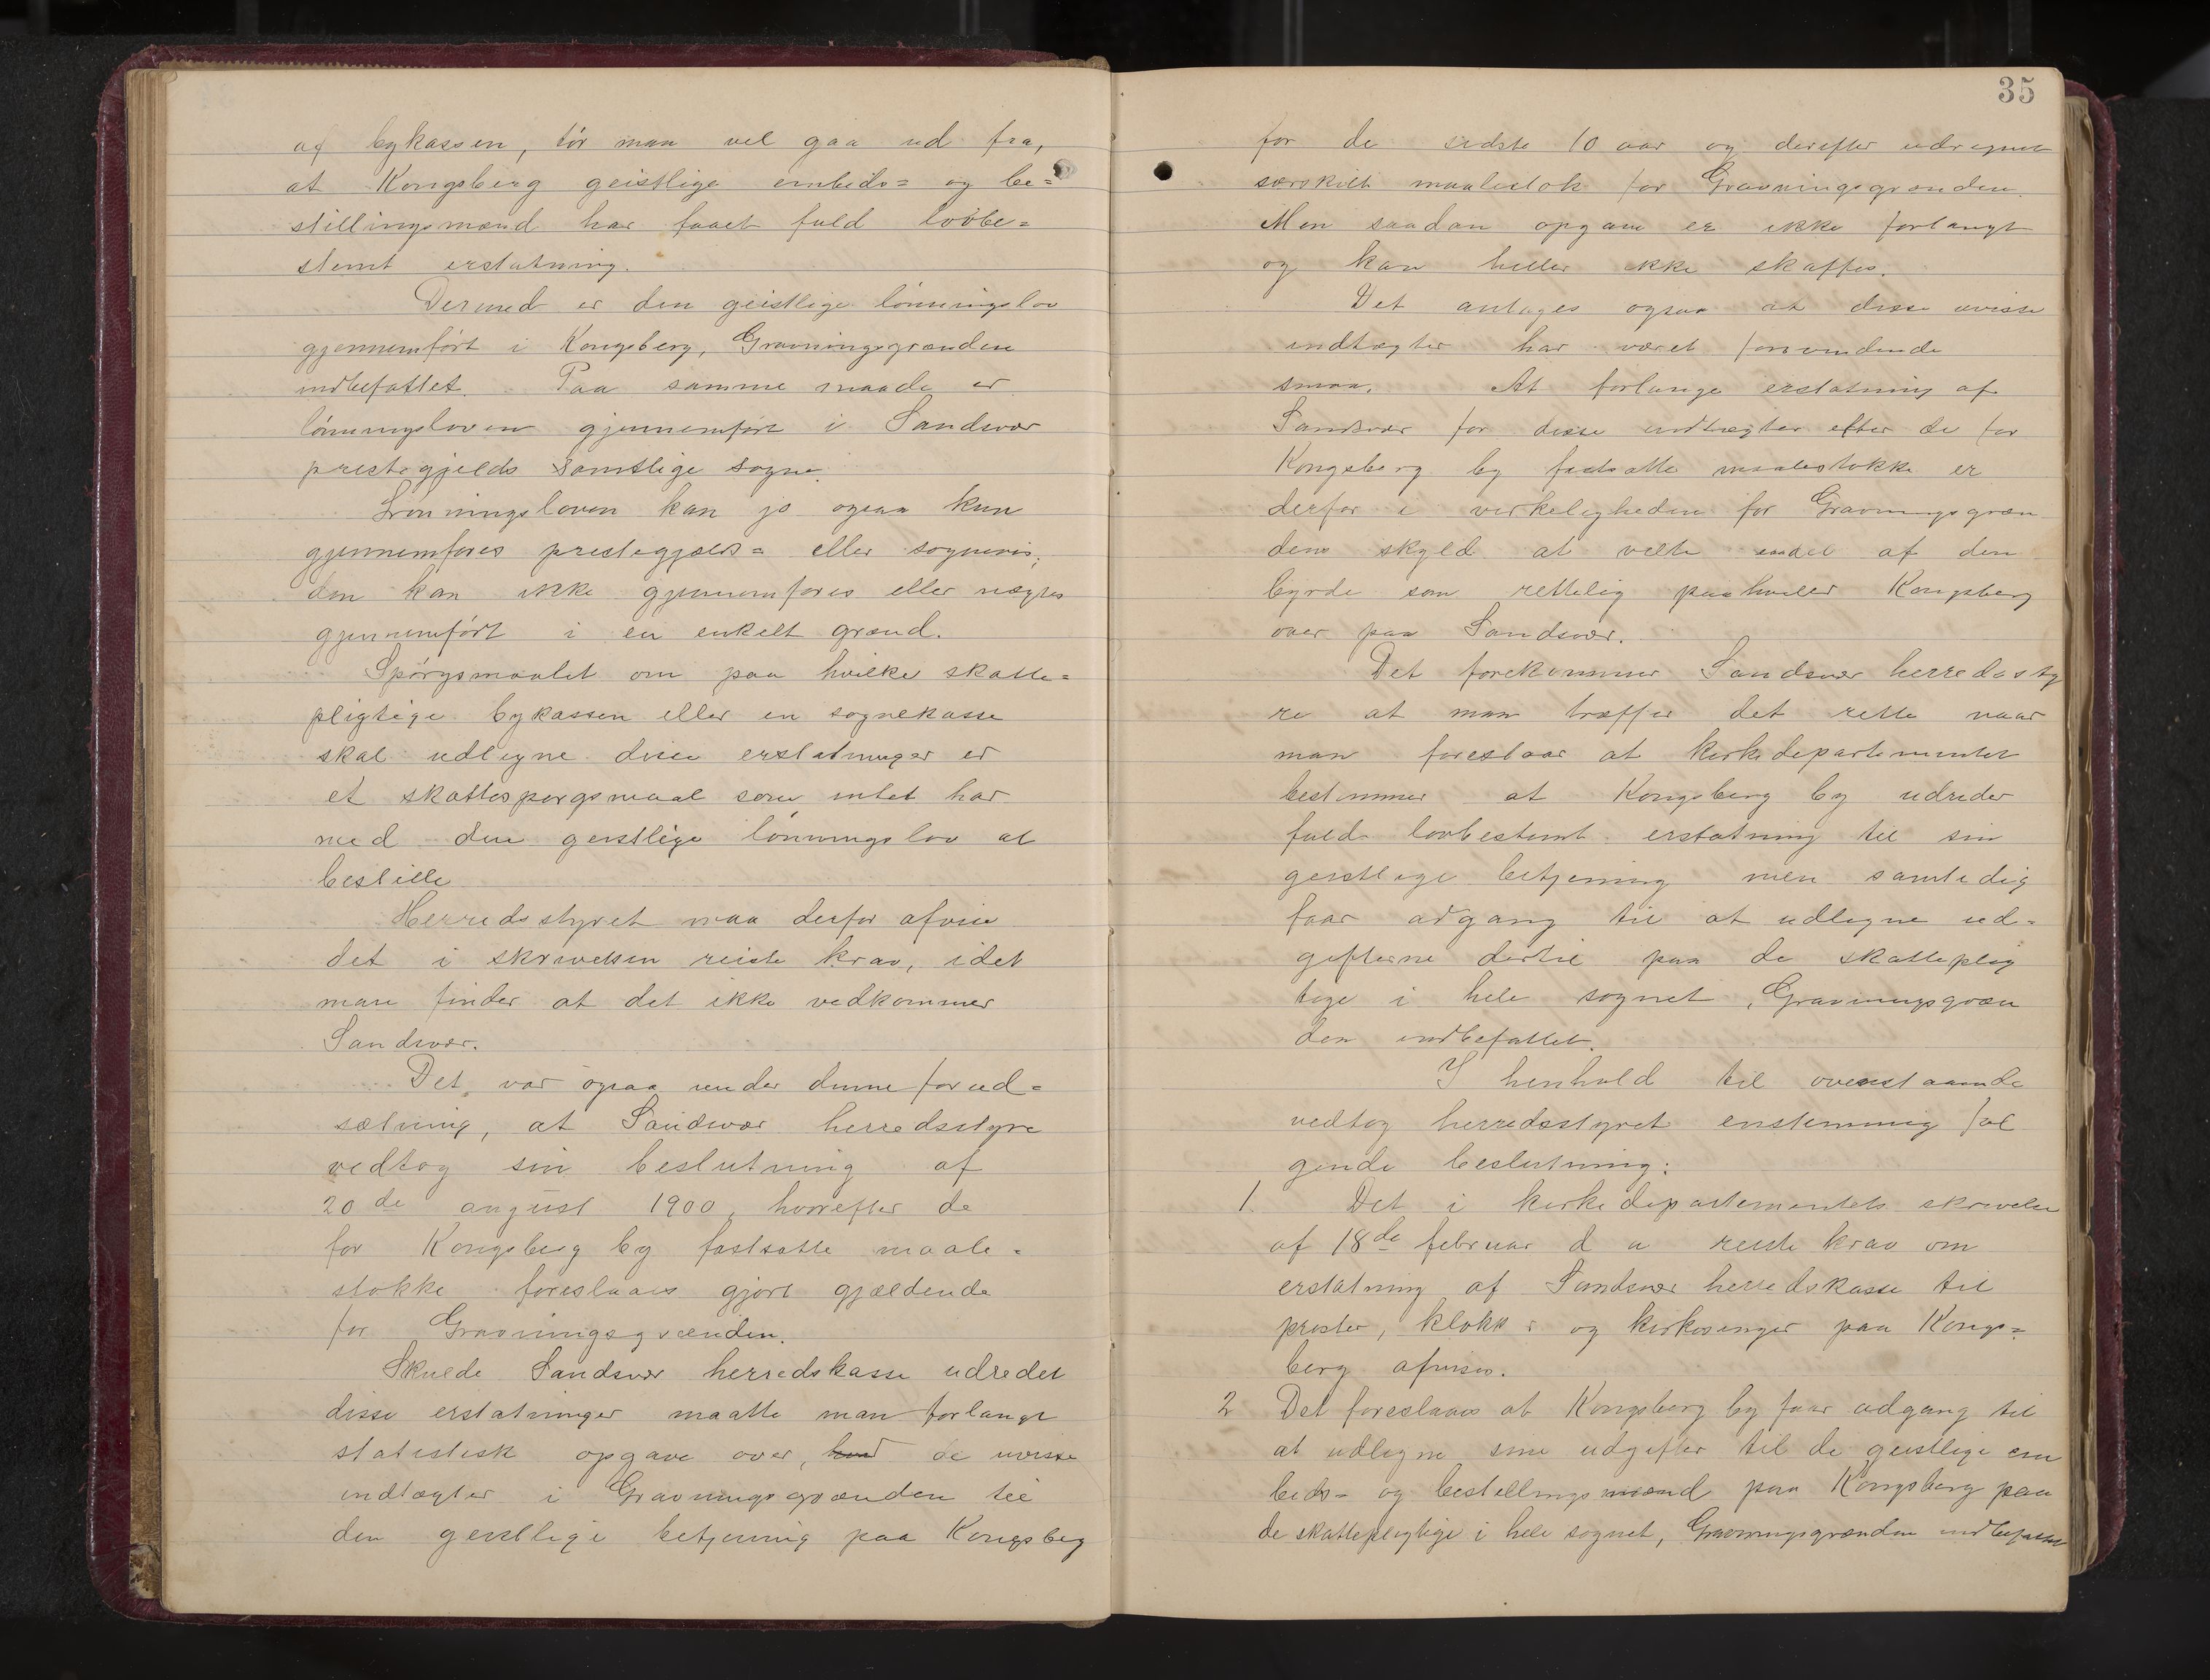 af bykassen, tör man vel gaa ud fra,
at Kongsberg geistlige embeds= og be=
stillingsmænd har faaet fuld lovbe=
stemt erstatning.
Dermed er den geistlige lönningslov
gjennemfört i Kongsberg, Gravningsgrænden
indbefattet. Paa samme maade er
lönningsloven gjennemfört i Sandsvær
prestegjelds samtlige sogne.
Lönningsloven kan jo ogsaa kun
gjennemføres prestegjælds= eller sognevis;
den kan ikke gjennemføres eller nægtes
gjennemfört i en enkelt grænd.
Spörgsmaalet om paa hvilke skatte=
pligtige bykassen eller en sognekasse
skal udligne disse erstatninger er
et skattespørgsmaal som intet har
med den geistlige lönningslov at
bestille
Herredsstyret maa derfor afvise
det i skrivelsen reiste krav, idet
man finder at det ikke vedkommer
Sandsvær.
Det var ogsaa under denne forud=
sætning, at Sandsvær herredsstyre
vedtog sin beslutning af
20de august 1900, hvorefter de
for Kongsberg by fastsatte maale=
stokke foreslaaes gjort gjældende
for Gravningsgrænden.
Skulde Sandsvær herredskasse udredet
disse erstatninger maatte man forlangt
statistisk opgave over, hvad de uvisse
indtægter i Gravningsgrænden til
den geistlige betjening paa Kongsbeg
35
for de sidste 10 aar og derefter udregnet
særskilt maalestok for Gravningsgrænden.
Men saadan opgave er ikke forlangt
og kan heller ikke skaffes.
Det antages ogsaa at disse uvisse
indtægter har været forsvindende
smaa. At forlange erstatning af
Sandsvær for disse indtægter efter de for
Kongsberg by fastsatte maalestokke er
derfor i virkeligheden for Gravningsgræn
dens skyld at velte endel af den
byrde som rettelig paahviler Kongsberg
over paa Sandsvær.
Det forekommer Sandsvær herredssty
re at man træffer det rette naar
man foreslaar at kirkedepartementet
bestemmer at Kongsberg by udreder
fuld lovbestemt erstatning til sin
geistlige betjening men samtidig
faar adgang til at udligne ud=
gifterne dertil paa de skatteplig
tige i hele sognet, Gravningsgræn
den indbefattet.
I henhold til ovenstaaende
vedtog herredsstyret enstemmig føl
gende beslutning:
1. Det i kirkedepartementets skrivelse
af 18de februar d a reiste krav om
erstatning af Sandsvær herredskasse til
prester, klokker og kirkesanger paa Kongs=
berg afvises.
2 Det foreslaaes at Kongsberg by faar adgang til
at udligne sine udgifter til de geistlige em
beds= og bestillingsmænd paa Kongsberg paa
de skattepligtige i hele sognet, Gravningsgrænden indbefattet